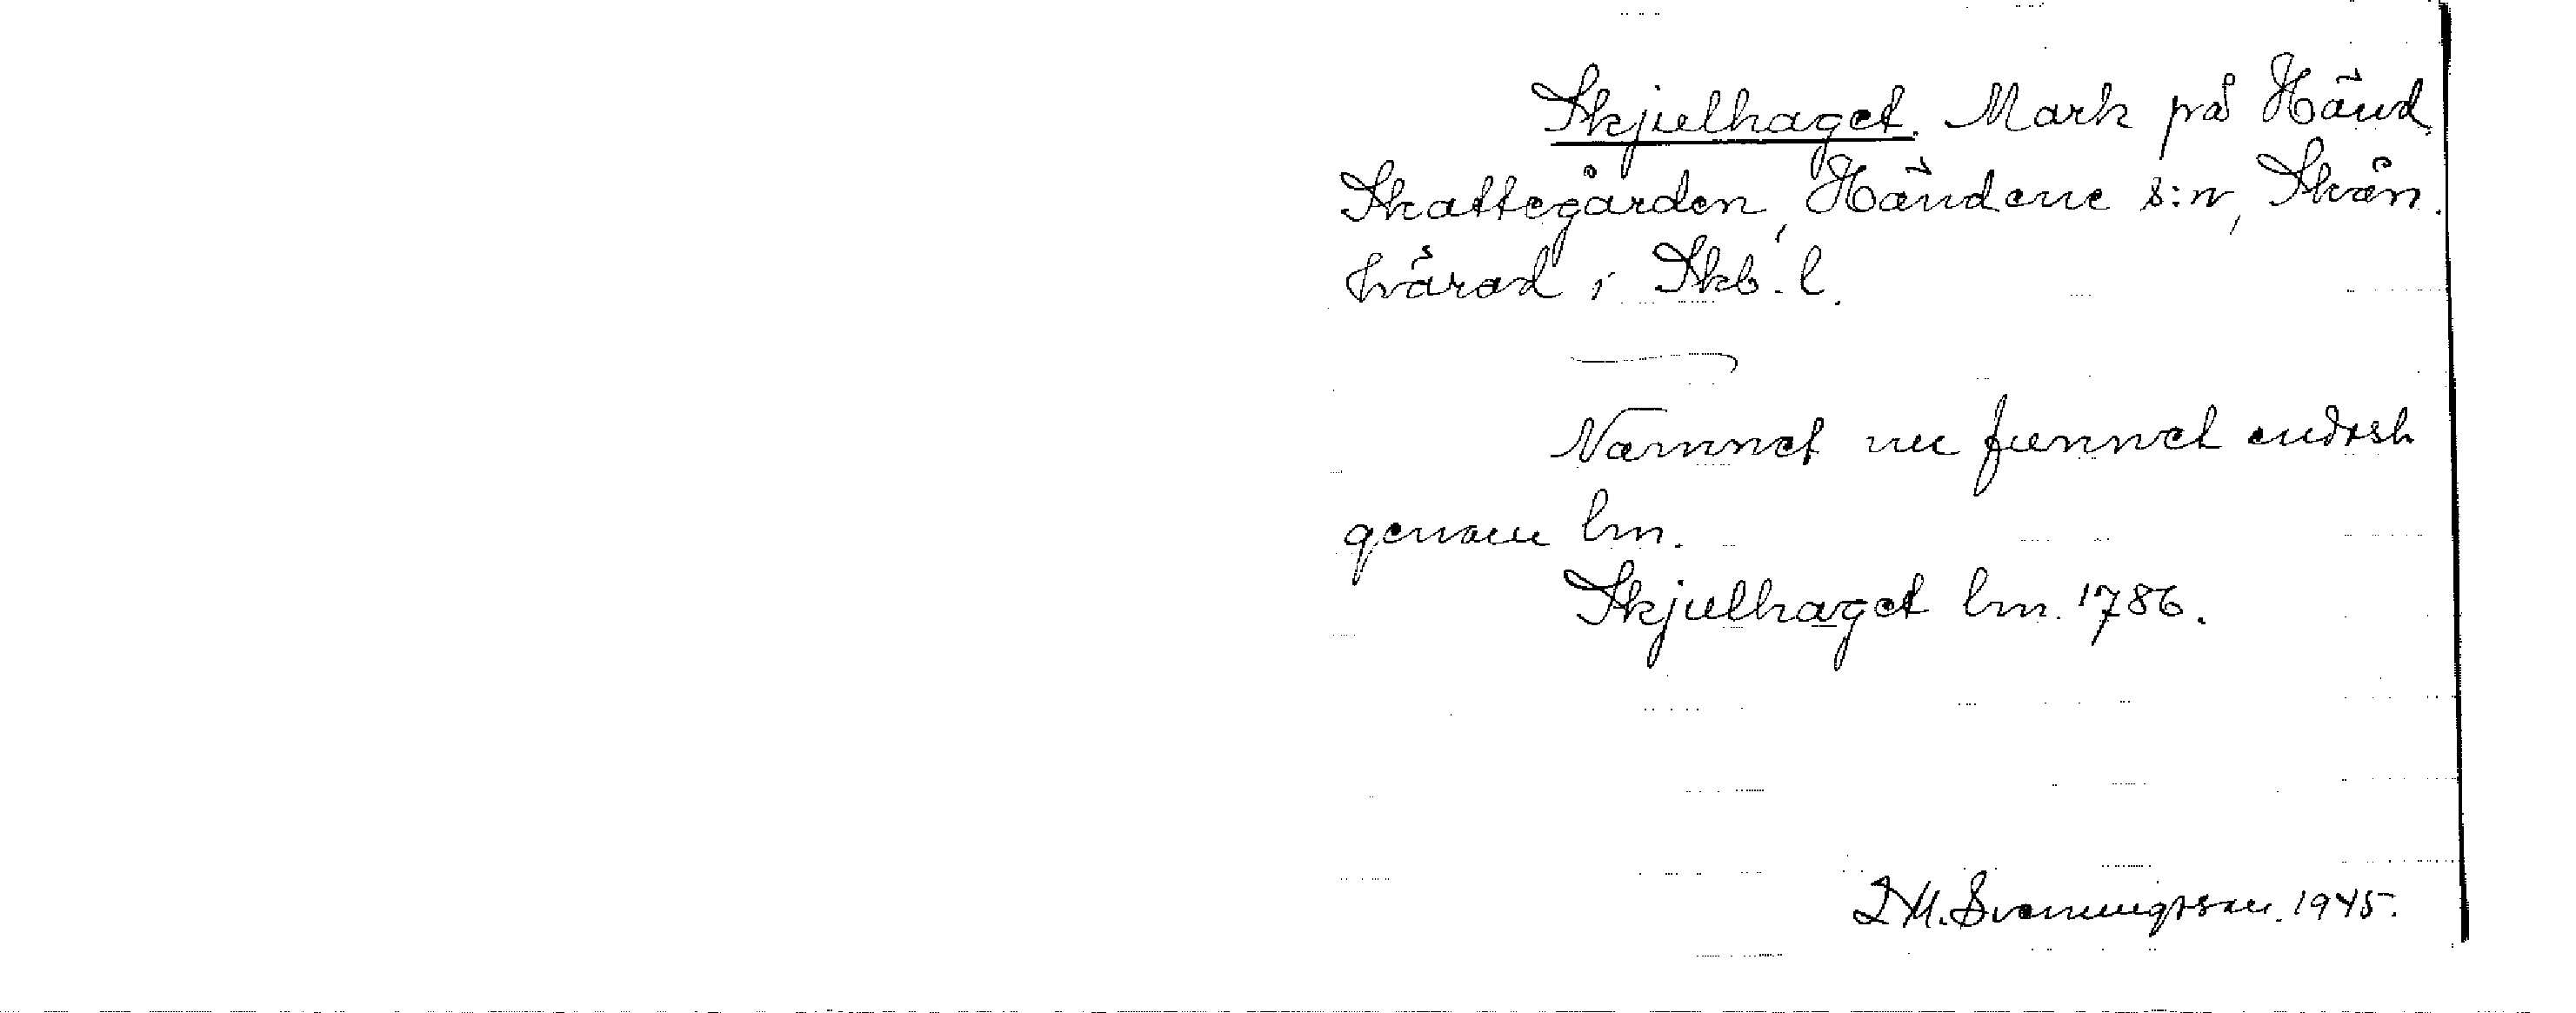 Skjulhaget. Mark på Händ.
Skattegården, Händene s:n, Skån.
härad i Skb. l.
Namnet nu funnet endast
genom lm.
Skjulhaget lm. 1786.
L M. Svenungsson. 1945.